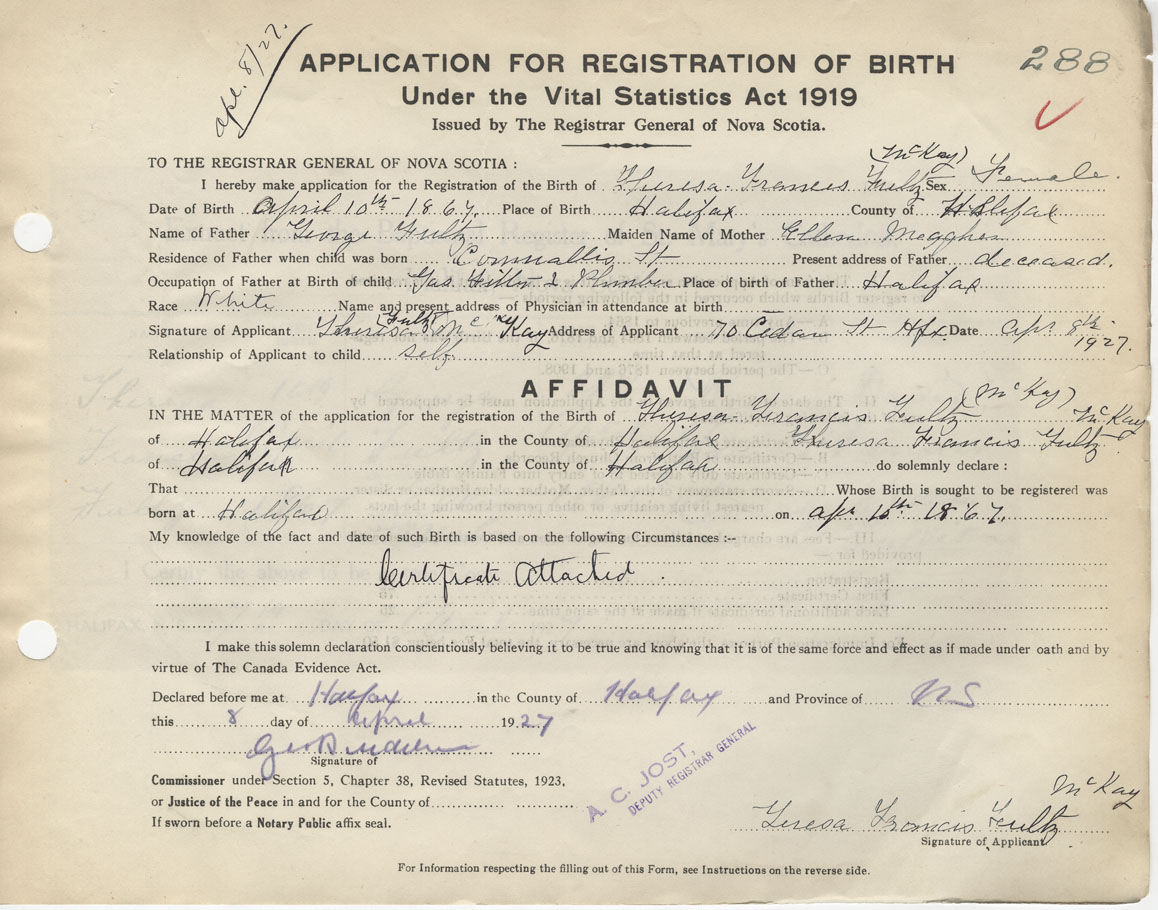 apl. 8/27.
APPLICATION FOR REGISTRATION OF BIRTH 288
Under the Vital Statistics Act 1919
Issued by The Registrar General of Nova Scotia.
TO THE REGISTRAR GENERAL OF NOVA SCOTIA :
I hereby make application for the Registration of the Birth of Theresa Francis Fultz (McKay) Sex Female.
Date of Birth April 10th 1867. Place of Birth Halifax County of Halifax
Name of Father George Fultz Maiden Name of Mother Ellen
Residence of Father when child was born Cornwallis St Present address of Father deceased.
Occupation of Father at Birth of child Gas Fitter & Plumber Place of birth of Father Halifax
Race White Name and present address of Physician in attendance at birth
Signature of Applicant Theresa (Fultz) McKay Address of Applicant 70 Cedar St Hfx. Date Apr 8th 1927.
Relationship of Applicant to child self
AFFIDAVIT
IN THE MATTER of the application for the registration of the Birth of Theresa Francis Fultz (McKay)
of Halifax in the County of Halifax Theresa Francis Fultz McKay
of Halifax in the County of Halifax do solemnly declare :
That Whose Birth is sought to be registered was
born at Halifax on Apr 10th 1867.
My knowledge of the fact and date of such Birth is based on the following Circumstances :--
Certificate Attached.
I make this solemn declaration conscientiously believing it to be true and knowing that it is of the same force and effect as if made under oath and by
virtue of The Canada Evidence Act.
Declared before me at Halifax in the County of Halifax and Province of NS
this 8 day of April 1927
Signature of
Commissioner under Section 5, Chapter 38, Revised Statutes, 1923,
or Justice of the Peace in and for the County of
If sworn before a Notary Public affix seal.
A. C. JOST,
DEPUTY REGISTRAR GENERAL
Teresa Francis Fultz McKay
Signature of Applicant
For Information respecting the filling out of this Form, see Instructions on the reverse side.